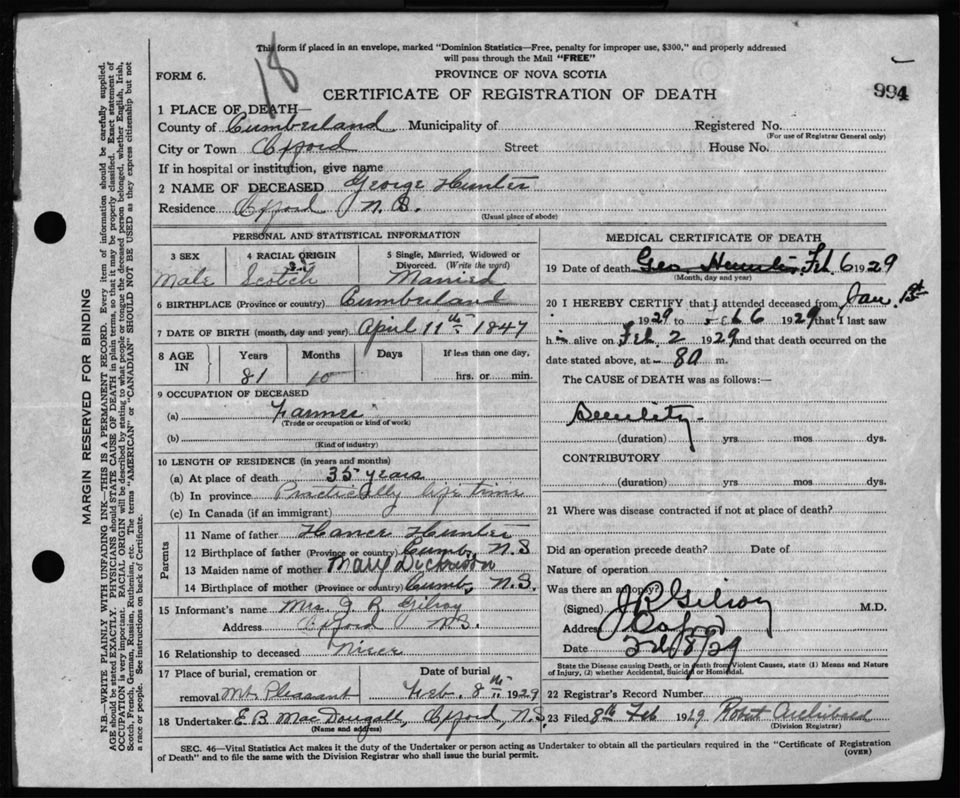 This form if placed in an envelope, marked "Dominion Statistics—Free, penalty for improper use, $300," and properly addressed
will pass through the Mail "FREE"
18
FORM 6.
PROVINCE OF NOVA SCOTIA
994
CERTIFICATE OF REGISTRATION OF DEATH
1 PLACE OF DEATH—
County of Cumberland Municipality of Registered No.
(For use of Registrar General only)
City or Town Oxford Street House No.
If in hospital or institution, give name
2 NAME OF DECEASED George Hunter
Residence Oxford N.S.
(Usual place of abode)
PERSONAL AND STATISTICAL INFORMATION
3 SEX 4 RACIAL ORIGIN 5 Single, Married, Widowed or Divorced. (Write the word)
Male Scotch Married
6 BIRTHPLACE (Province or country) Cumberland
7 DATE OF BIRTH (month, day and year) April 11th 1847
8 AGE IN Years Months Days If less than one day,
81 10 hrs. or min.
9 OCCUPATION OF DECEASED
(a) Farmer
(Trade or occupation or kind of work)
(b)
(Kind of industry)
10 LENGTH OF RESIDENCE (in years and months)
(a) At place of death 35 years
(b) In province Practically life time
(c) In Canada (if an immigrant)
Parents
11 Name of father Hance Hunter
12 Birthplace of father (Province or country) Cumb, N.S
13 Maiden name of mother Mary Dickinson
14 Birthplace of mother (Province or country) Cumb, N.S.
15 Informant's name Mrs J R Gilroy
Address Oxford N.S.
16 Relationship to deceased Niece
17 Place of burial, cremation or removal Mt. Pleasant
Date of burial Feb. 8th 1929
18 Undertaker E. B. MacDougall, Oxford, N.S.
(Name and address)
MEDICAL CERTIFICATE OF DEATH
19 Date of death Geo Hunter Feb 6 1929
(Month, day and year)
20 I HEREBY CERTIFY that I attended deceased from Jan. 1st
1929 to Feb 6 1929 that I last saw
him alive on Feb 2 1929 and that death occurred on the
date stated above, at 8a m.
The CAUSE of DEATH was as follows:—
Senility
(duration) yrs mos dys.
CONTRIBUTORY
(duration) yrs. mos dys.
21 Where was disease contracted if not at place of death?
Did an operation precede death? Date of
Nature of operation
Was there an autopsy?
(Signed) J R Gilroy M.D.
Address Oxford
Date Feb/8/29
State the Disease causing Death, or in death from Violent Causes, state (1) Means and Nature
of Injury, (2) whether Accidental, Suicidal or Homicidal.
22 Registrar's Record Number
23 Filed 8th Feb 1929 Robert Archibald
(Division Registrar)
SEC. 46—Vital Statistics Act makes it the duty of the Undertaker or person acting as Undertaker to obtain all the particulars required in the "Certificate of Registration
of Death" and to file the same with the Division Registrar who shall issue the burial permit. (OVER)
MARGIN RESERVED FOR BINDING
N.B.—WRITE PLAINLY WITH UNFADING INK—THIS IS A PERMANENT RECORD. Every item of information should be carefully supplied.
AGE should be stated EXACTLY. PHYSICIANS should STATE CAUSE OF DEATH in plain terms, so that it may be properly classified. Exact statement of
OCCUPATION is very important. RACIAL ORIGIN will be described by stating to what people or tongue the deceased person belonged, whether English, Irish,
Scotch, French, German, Russian, Ruthenian, etc. The terms "AMERICAN" or "CANADIAN" SHOULD NOT BE USED as they express citizenship but not
a race or people. See instructions on back of Certificate.